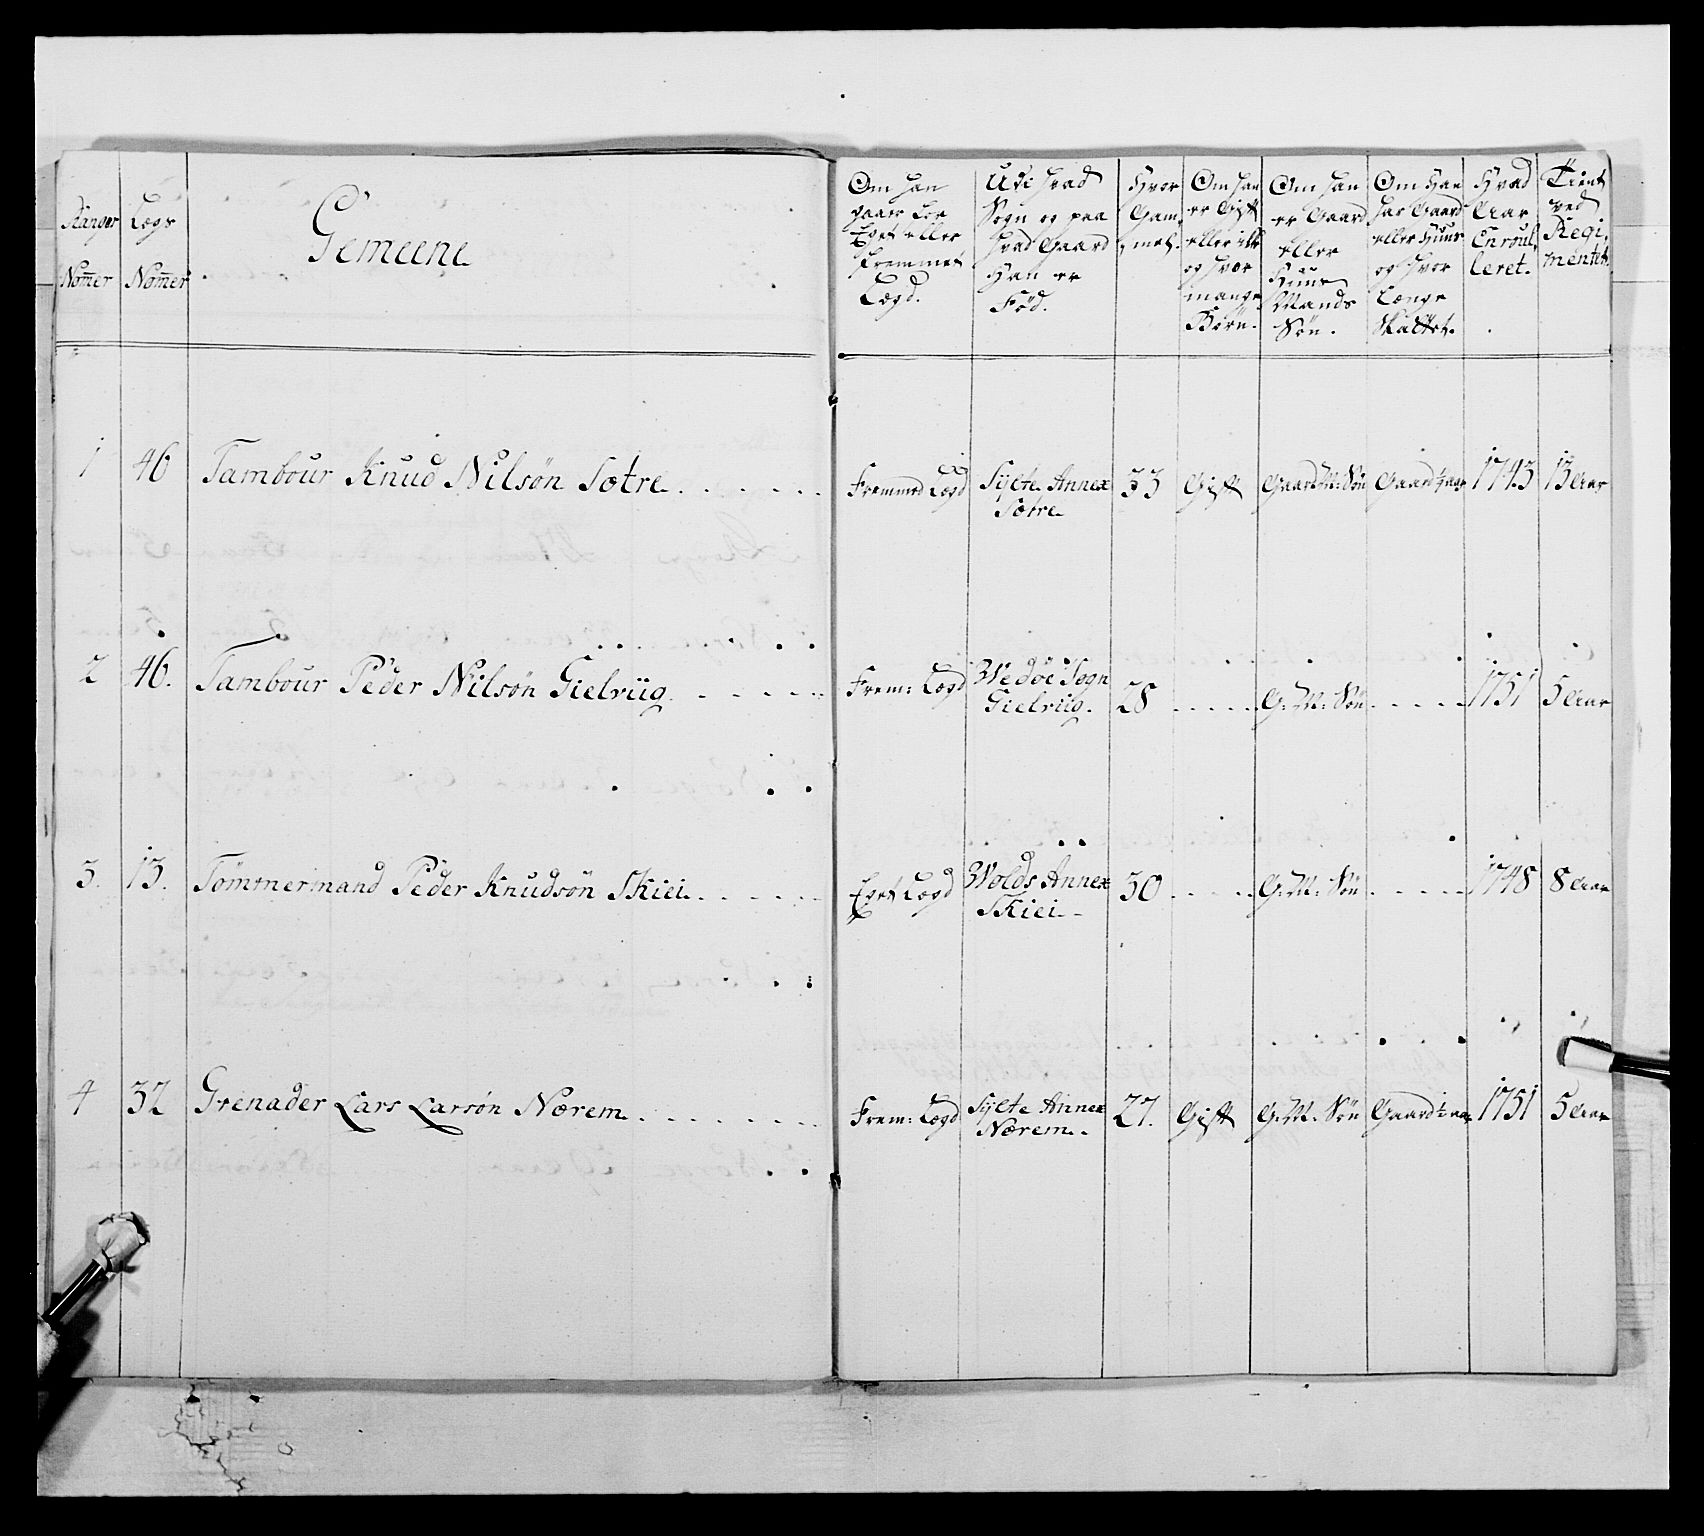 Ranger
Nom̅er
Lægs
Nom̅er
Gemeene
Om han
gaaer for
Eget eller
fremmet
Lægd.
Udi hvad
Sogn og paa
hvad Gaard
han er
Fød.
Hvor
Gam̅
mel.
Om han
er Gift
eller ikke
og hvor
mange
Börn.
Om han
er Gaard
eller
Huus
Mands
Søn.
Om han
har Gaard
eller Huus
og hvor
Længe
Skattet.
Hvad
Aar
Enroul
leret.
Tient
ved
Regi,
mentet.
1 46 Tambour Knud Nilsøn Sætre Fremmed Lægd Sylte Annex 33 Gift Gaard M: Søn Gaard 1743 13 Aar
Sætre
2 46. Tambour Peder Nilsøn Gielriig Frem: Lægd Wedøe Sogn 28 G: M: Søn 1751 5 Aar
Gielriig.
3. 13. Tømmermand Peder Knudsøn Skiei Eget Lægd Wolds Annex 30 G: M: Søn 1748 8 Aar
Skiei
4 32 Grenader Lars Larsøn Nærem Frem: Lægd Sylte Annex 27. Gift G: M: Søn Gaard 1751 5 Aar
Nærem